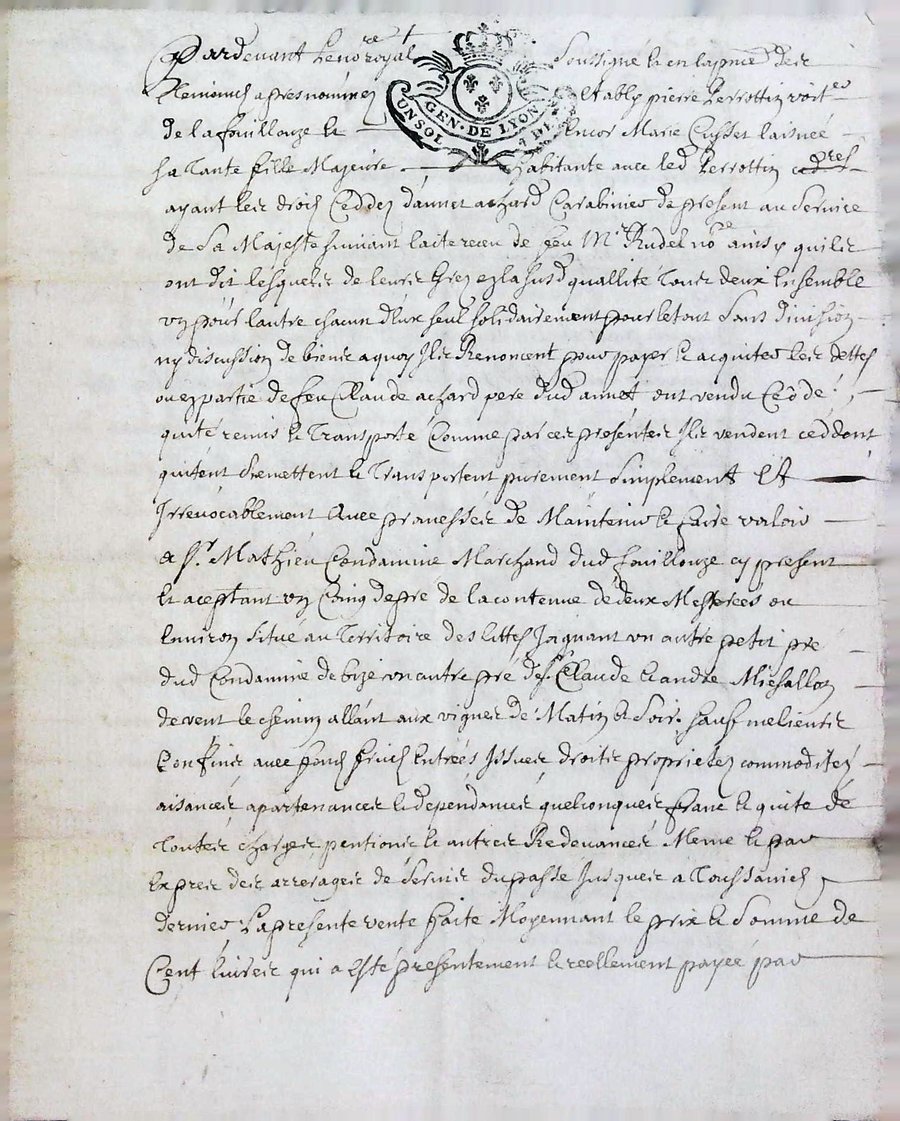 Pardevant Le no.re royal Soussigné & en la pnce des
tesmoins apres nommez estably pierre Perrottin voit.er
de la fouillouze & Encor Marie Cusset laisnée
sa Tante fille Majeure habitante avec led Perrottin
ayant les droits Ceddez d'annet achard Carabinier de present au Service
de Sa Majesté suivant lacte receu de feu M.r Rudel no.re ainsy quils
ont dit lesquels de leurs Grez ez la susd quallité Tous deux Ensemble
un pour lautre chacun deux seul solidairement pour le tout Sans division
ny discussion de biens a quoy Ils Renoncent pour payer & acquiter les dettes
ou ez partie de feu Claude achard pere dud annet ont vendu Ceddé
quité remis & Transporté Comme par ces presentes Ils vendent ceddent
quitent Remettent & Transportent purement Simplement Et
Irrevocablement Avec promesses de Maintenir & faire valoir
a S.r Mathieu Condamine Marchand dud fouillouze cy present
& aceptant un Coing de pre de la contenue de deux Mesterées ou
Environ Situé au Territoire des littes Joignant un autre petit pré
dud Condamine de bize un autre pré des Claude & andré Michallon
de vent le chemin allant aux vignes de Matin & Soir. sauf melieurs
Confins avec fonds fruits Entrées Issues droits proprietez commoditez
aisances apartenances & dependances quelconques franc & quite de
Toutes charges, pentions & autres Redevances Meme & par
Expres des arrerages de Servis du passé Jusques a Toussaincts
dernier La presente vente faite Moyennant le prix & Somme de
Cent livres qui a Esté presentement & reellement payée par
GEN. DE LYON
UN SOL